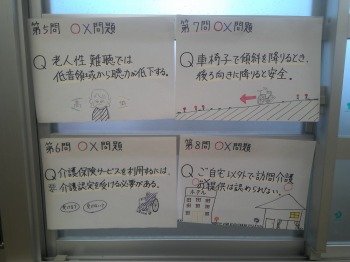 第5問 ○×問題
Q 老人性難聴では
低音領域から聴力が低下する。
第7問 ○×問題
Q 車椅子で傾斜を降りるとき、
後ろ向きに降りると安全。
第6問 ○×問題
Q 介護保険サービスを利用するには、
介護認定を受ける必要がある。
第8問 ○×問題
Q ご自宅以外で訪問介護
の提供は認められない。
ホテル